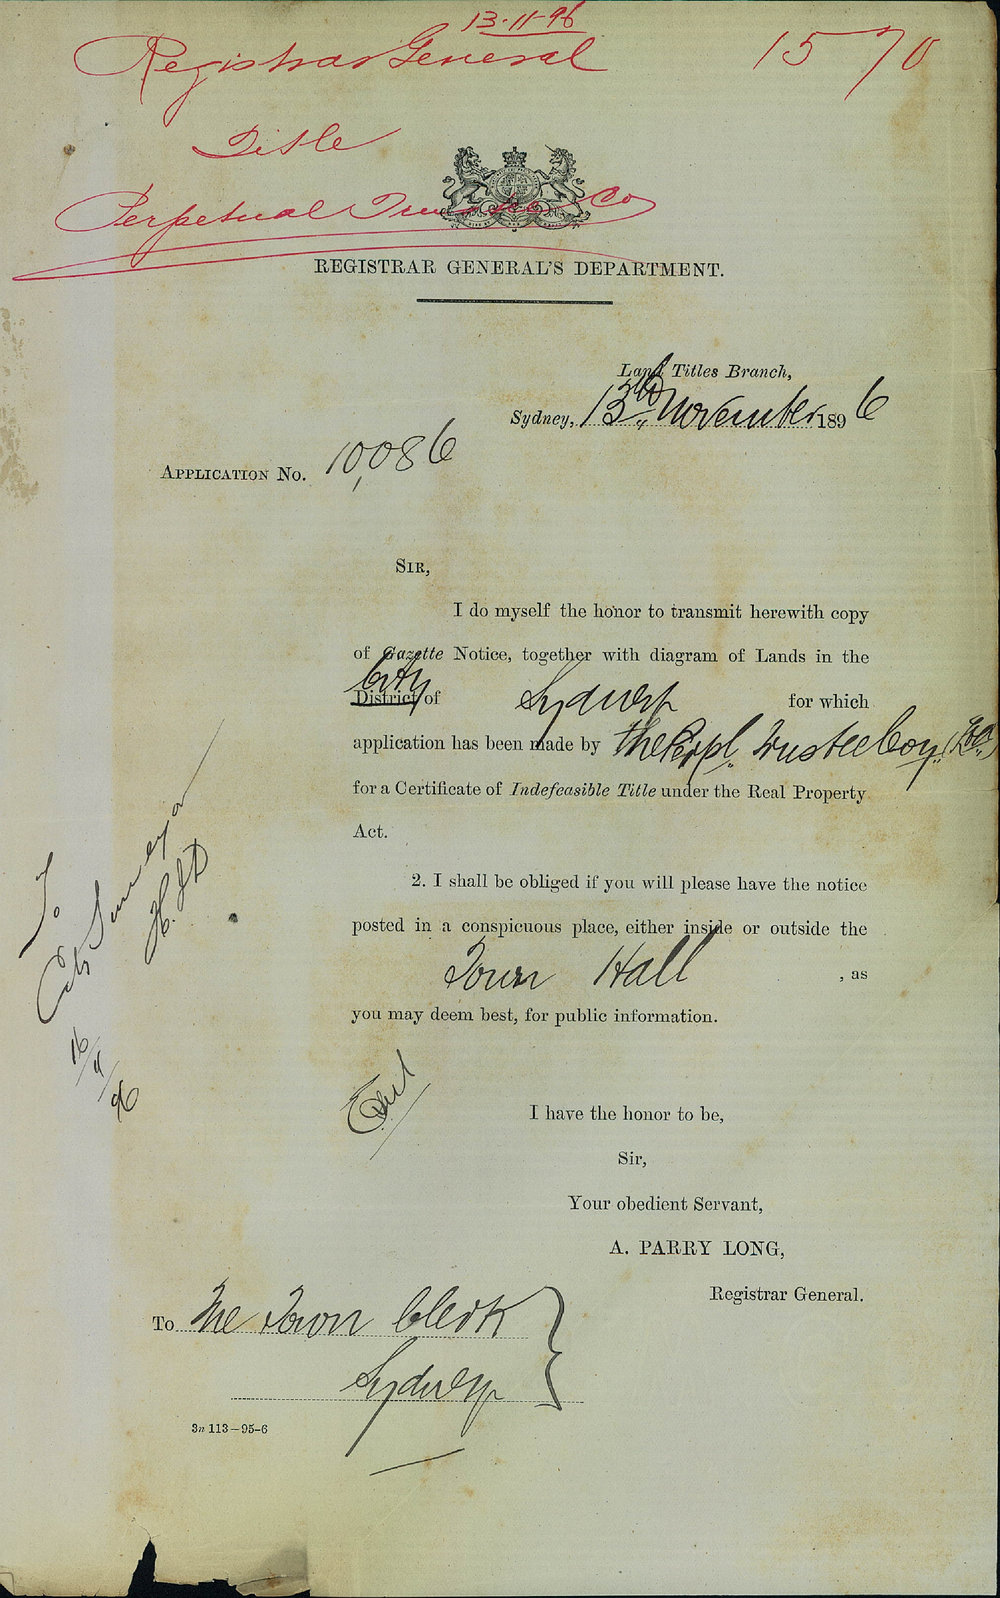 13-11-96
Registrar General 1570
Title
Perpetual Trustee Co
REGISTRAR GENERAL'S DEPARTMENT.
Land Titles Branch,
Sydney, 13th November 1896
APPLICATION No. 10,086
SIR,
I do myself the honor to transmit herewith copy
of Gazette Notice, together with diagram of Lands in the
City
District of Sydney for which
application has been made by the Perpl. Trustee Coy. (Ld.)
for a Certificate of Indefeasible Title under the Real Property
Act.
2. I shall be obliged if you will please have the notice
posted in a conspicuous place, either inside or outside the
Town Hall , as
you may deem best, for public information.
To
City Surveyor
16/11/96
I have the honor to be,
Sir,
Your obedient Servant,
A. PARRY LONG,
Registrar General.
To The Town Clerk
Sydney
3n 113—95-6